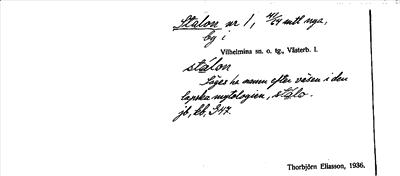 Stalon nr 1, 4/64 mtl nya,
by i
Vilhelmina sn. o. tg., Västerb. l.
stálon
Säges ha namn efter väsen i den
lapska mytologien, stálo.
jb, bb, 347.
Thorbjörn Eliasson, 1936.